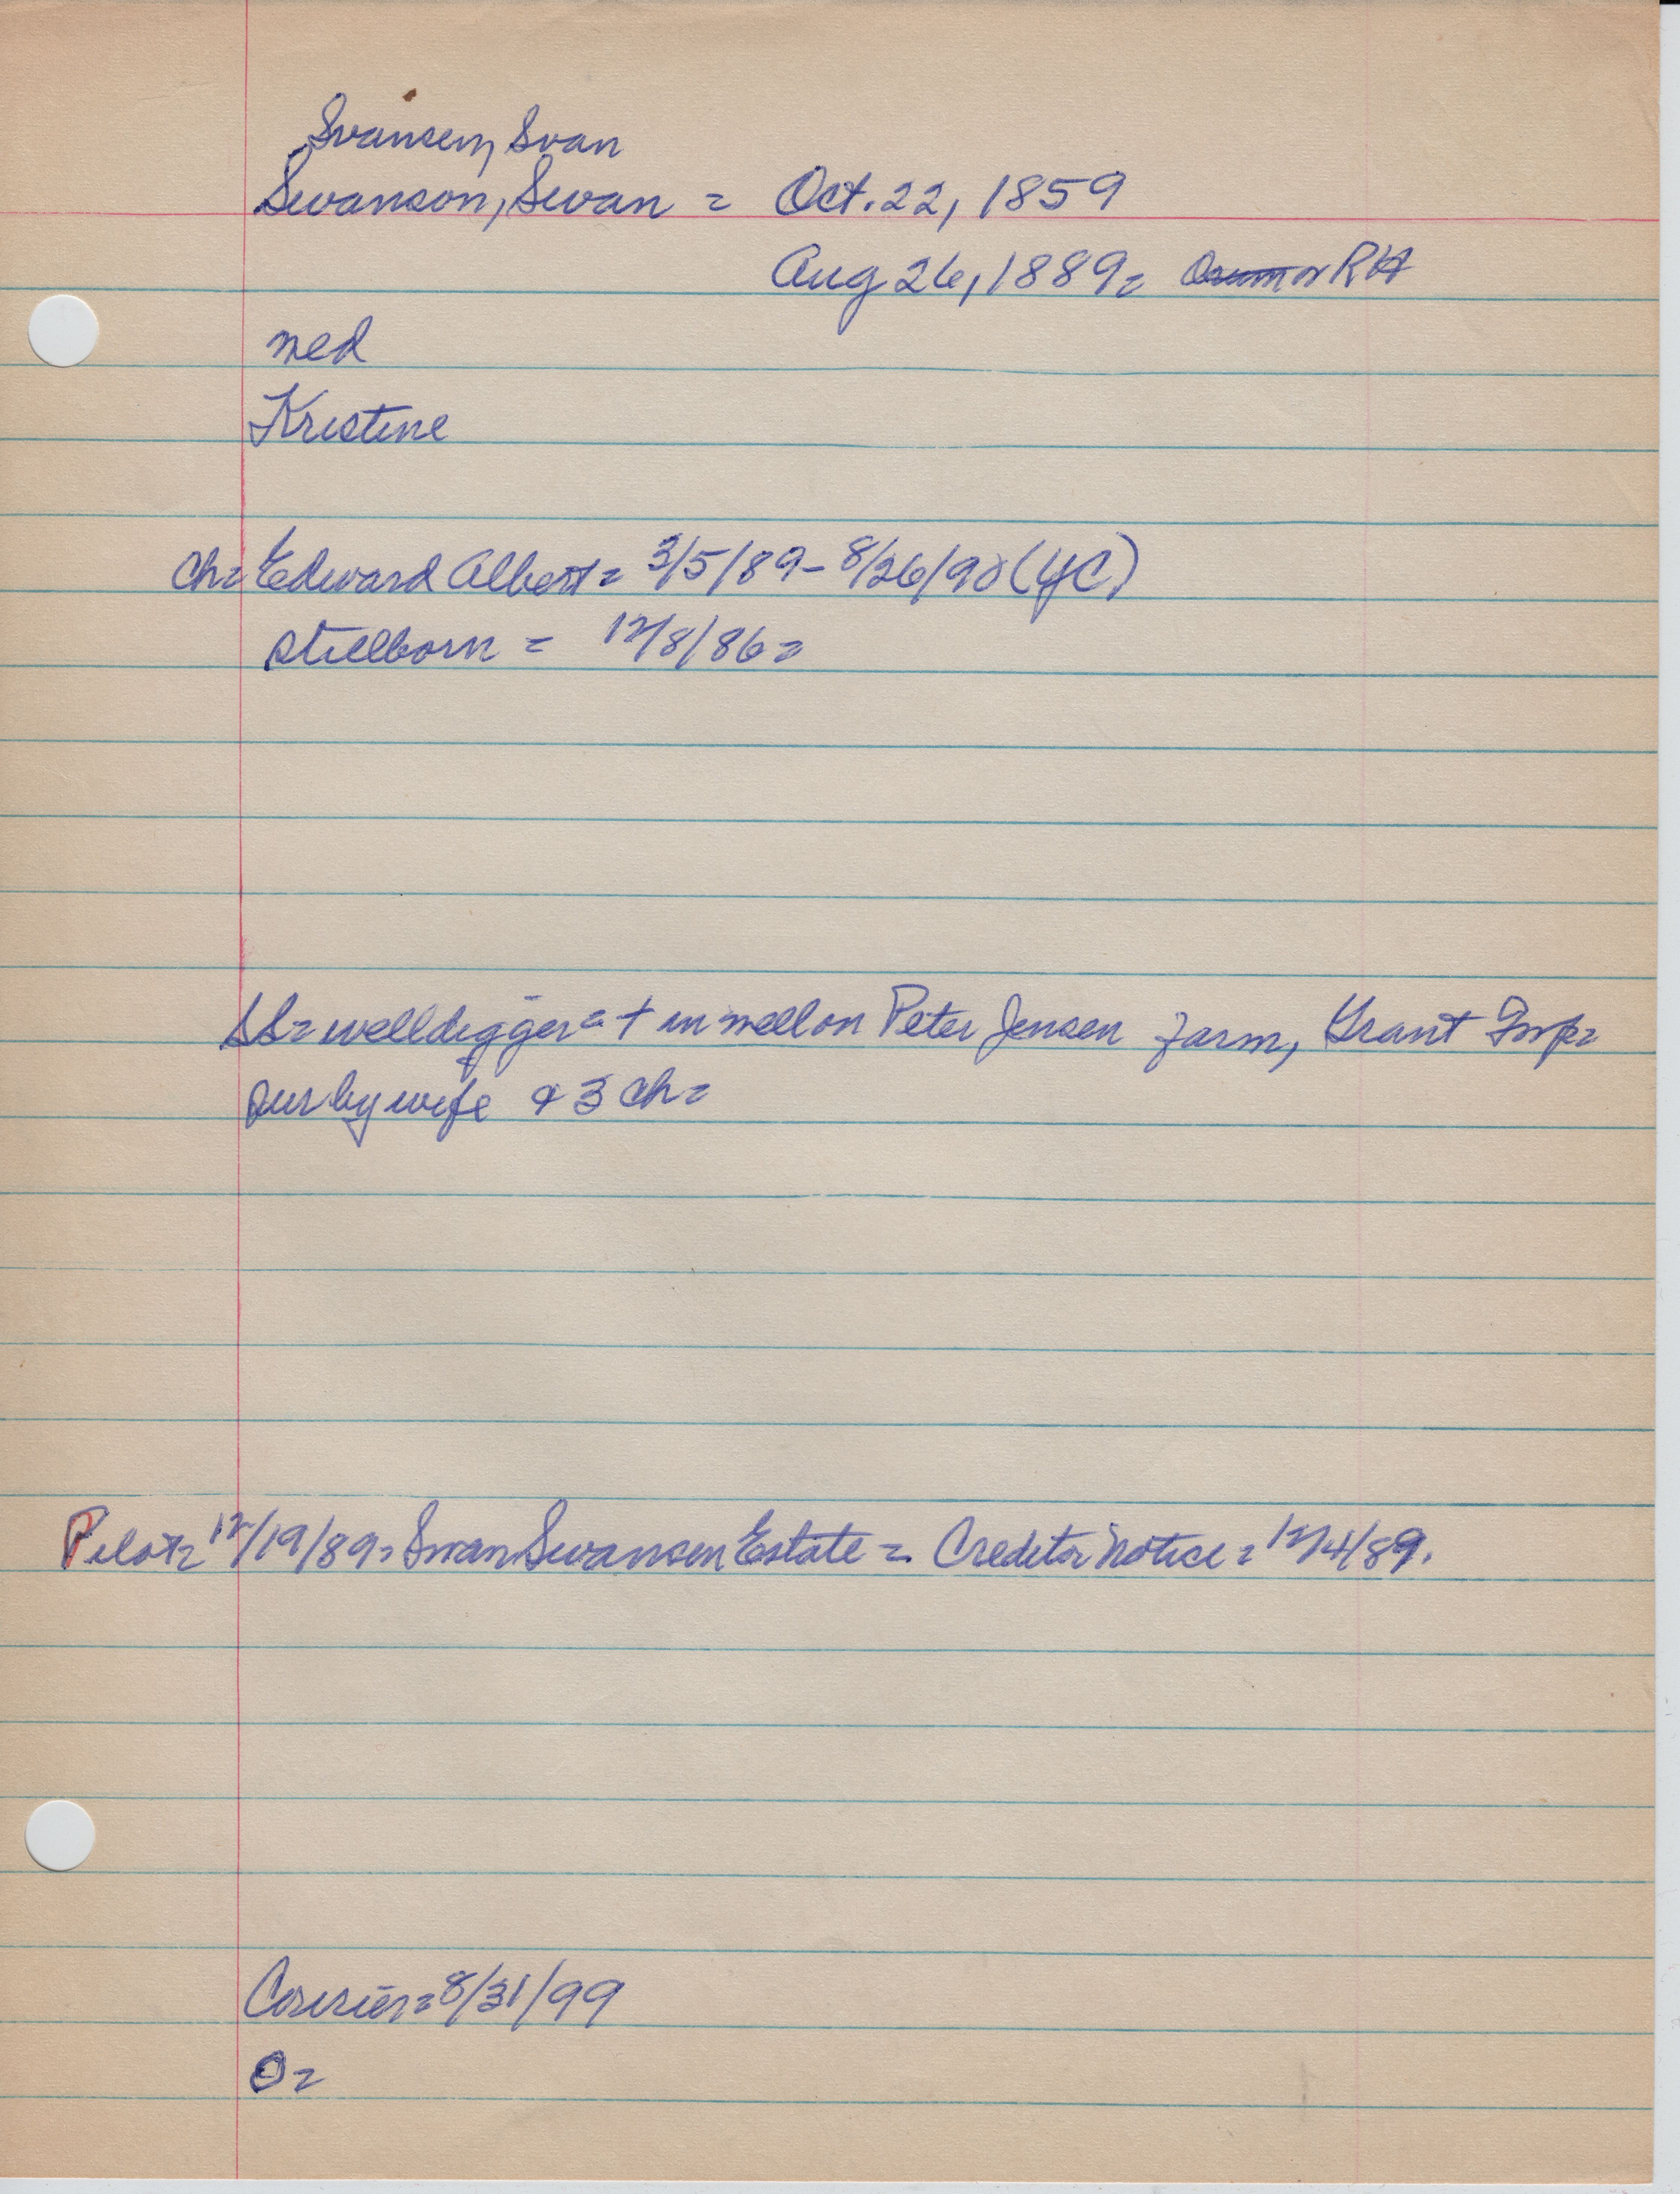 Svansen, Svan
Swanson, Swan = Oct. 22, 1859
Aug 26, 1889 = or RH
med
Kristine
ch = Edward Albert = 3/5/89 - 8/26/90 (YC)
stillborn = 12/8/86 =
SS = welldigger = + in well on Peter Jensen farm, Grant Twp =
sur by wife & 3 ch =
Pilot = 12/19/89 = Swan Swansen Estate = Creditor Notice = 12/4/89.
Courier = 8/31/99
O =